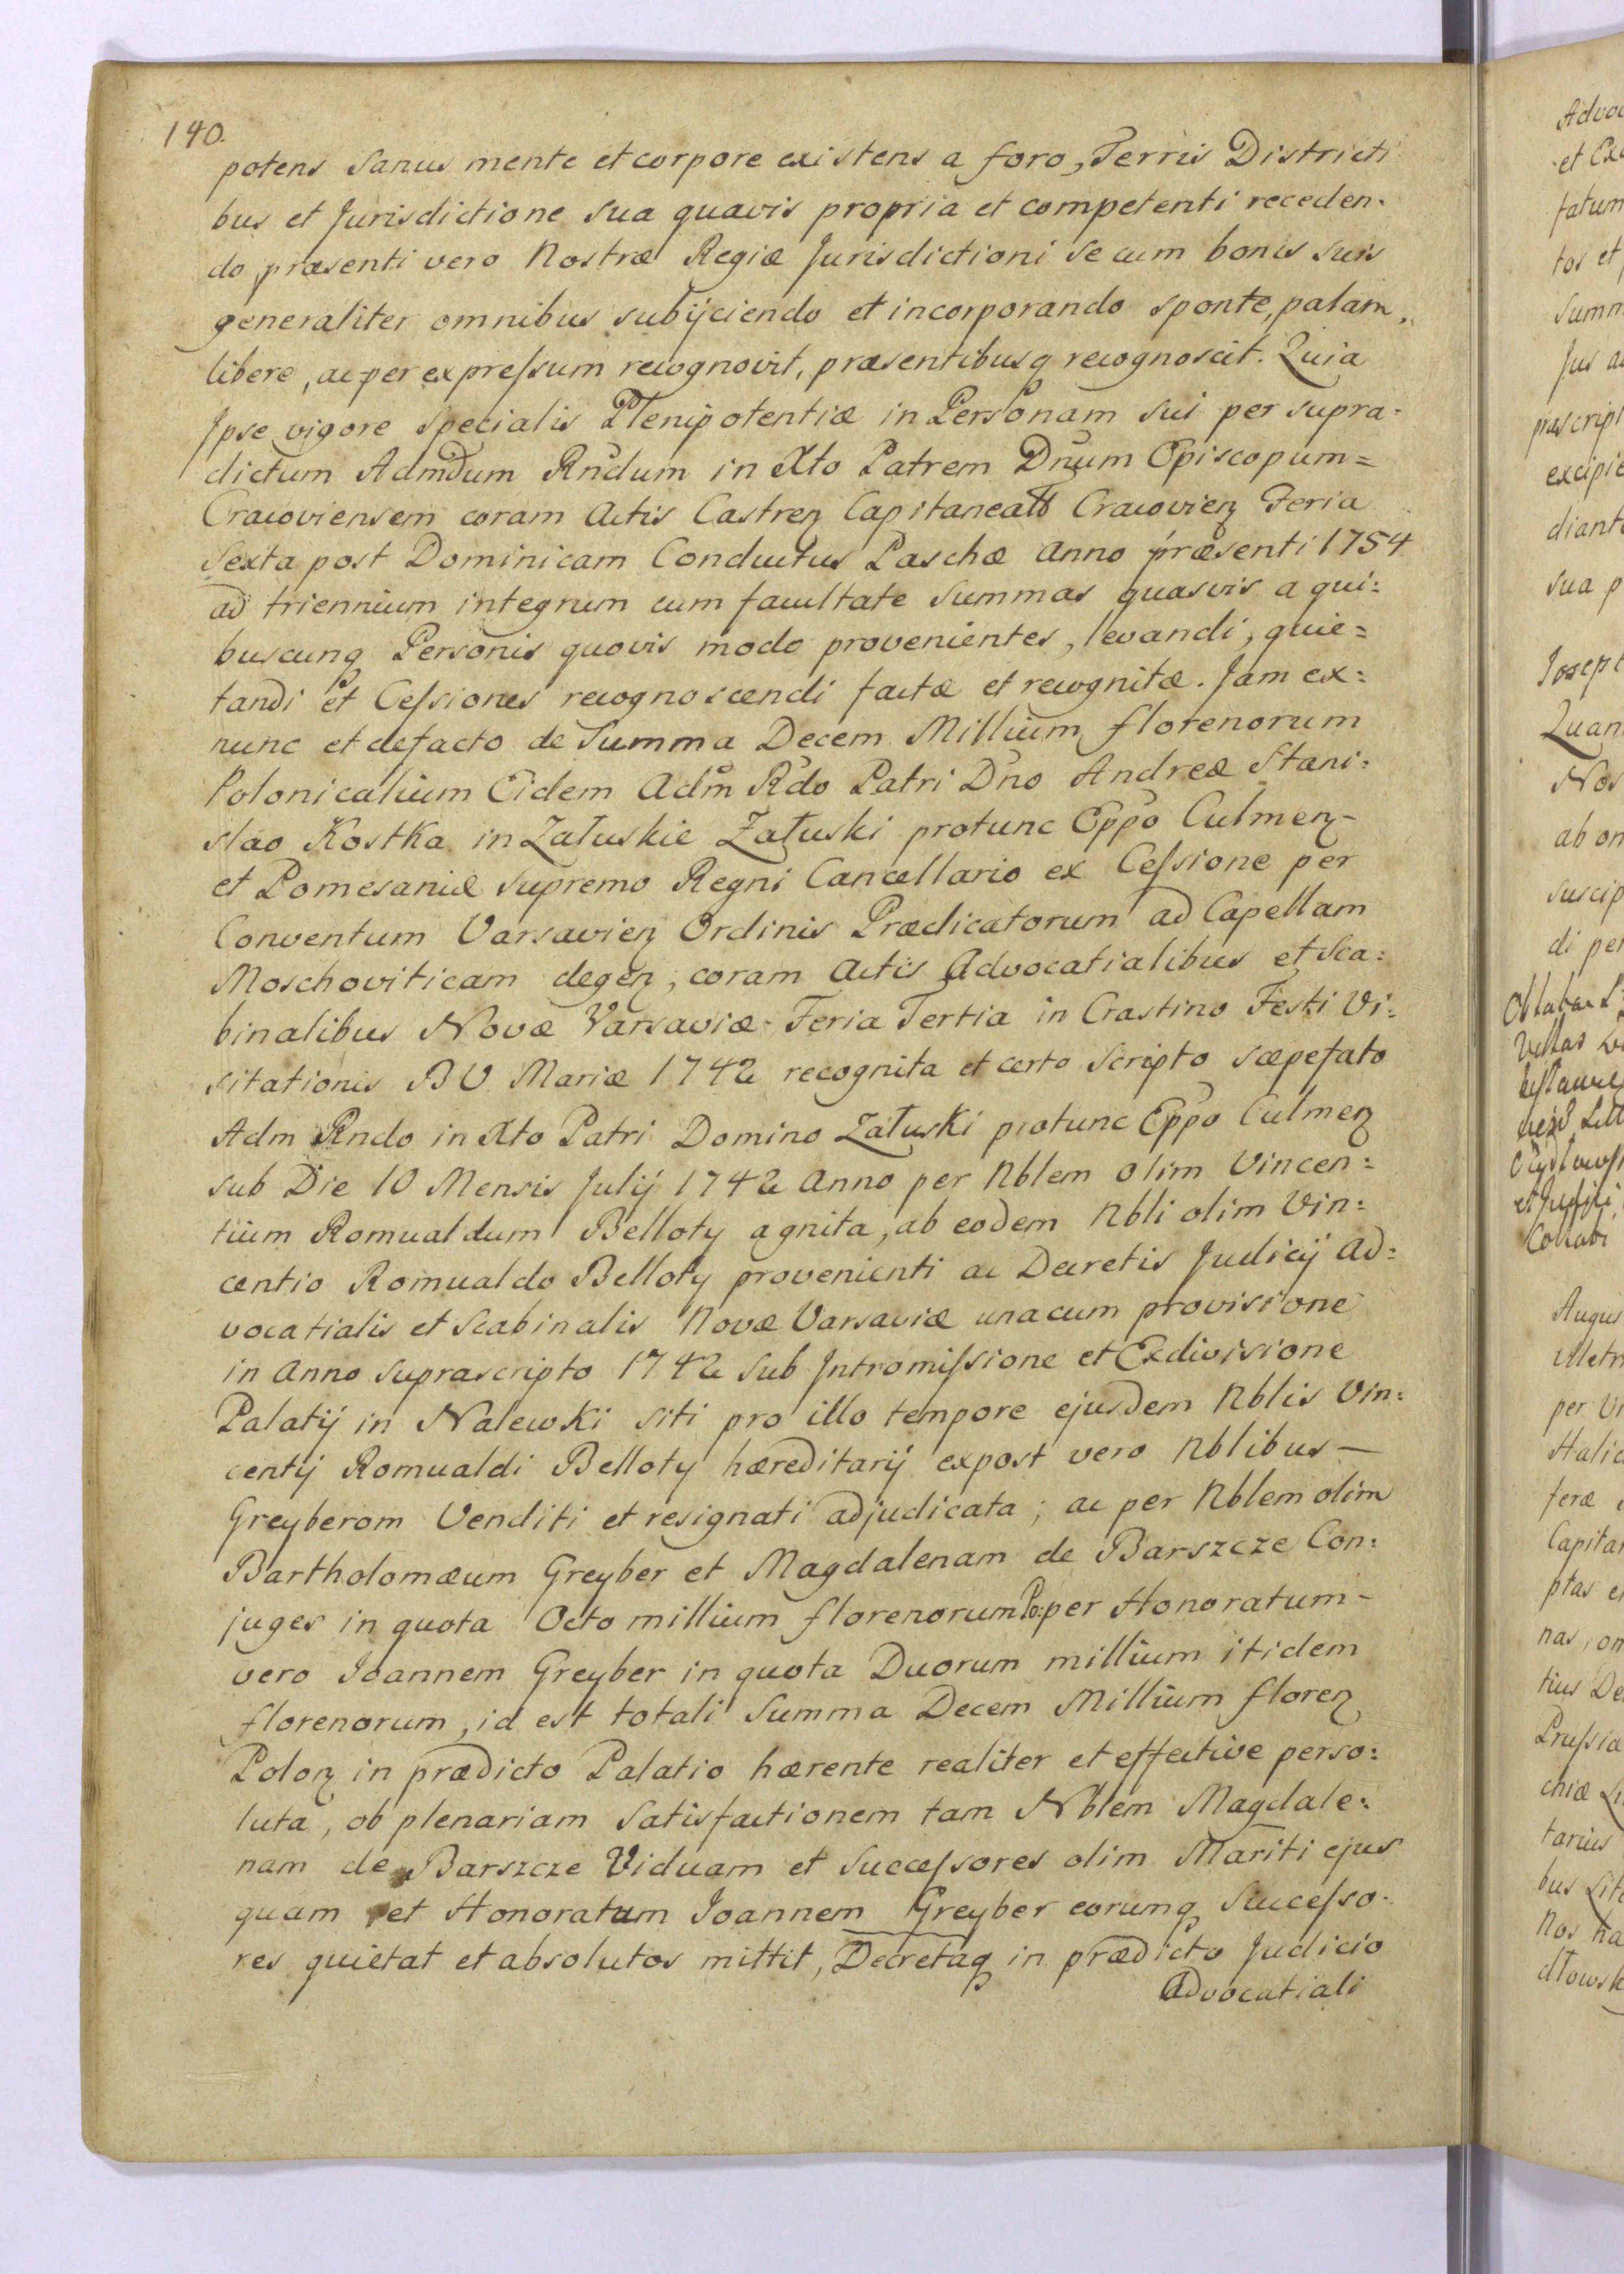 140.
potens Sanus mente et corpore existens a foro, Terris Districti
bus et Jurisdictione sua quavis propria et competenti receden-
do præsenti vero Nostræ Regiæ Jurisdictioni se cum bonis suis
generaliter omnibus subijciendo et incorporando sponte, palam,
libere, ac per expreſsum recognovit, præsentibusq recognoscit. Quia
Ipse vigore Specialis Plenipotentiæ in Personam sui per supra=
dictum Admdum Rndum in Xto Patrem Dnum Episcopum=
Cracoviensem coram Actis Castren Capitanealb Cracovien Feria
Sexta post Dominicam Conductus Paschæ Anno præsenti 1754
ad triennium integrum cum facultate Summas quasvis a qui=
buscunq Personis quovis modo provenientes, levandi, quie=
tandi et Ceſsiones recognoscendi factæ et recognitæ. Jam ex=
nunc et defacto de Summa Decem Millium florenorum
Polonicalium Eidem Adm Rdo Patri Dno Andreæ Stani=
slao Kostka in Załuskie Załuski protunc Eppo Culmen-
et Pomesaniæ Supremo Regni Cancellario ex Ceſsione per
Conventum Varsavien Ordinis Prædicatorum ad Capellam
Moschoviticam degen, coram Actis Advocatialibus et Sca=
binalibus Novæ Varsaviæ Feria Tertia in Crastino Festi Vi=
sitationis B V Mariæ 1742 recognita et certo Scripto sæpefato
Adm Rndo in Xto Patri Domino Załuski protunc Eppo Culmen
sub Die 10 Mensis Julij 1742 Anno per Nblem olim Vincen=
tium Romualdum Belloty agnita, ab eodem Nbli olim Vin=
centio Romualdo Belloty provenienti ac Decretis Judicij Ad=
vocatialis et Scabinalis Novæ Varsaviæ unacum provisione
in Anno suprascripto 1742 sub Intromiſsione et Exdivisione
Palatij in Nalewki siti pro illo tempore ejusdem Nblis Vin=
centij Romualdi Belloty hæreditarij expost vero Nblibus —
Greyberom Venditi et resignati adjudicata; ac per Nblem olim
Bartholomæum Greyber et Magdalenam de Barszcze Con=
juges in quota Octo millium florenorum Po: per Honoratum-
vero Ioannem Greyber in quota Duorum millium itidem
florenorum, id est totali Summa Decem Millium floren
Polon in prædicto Palatio hærente realiter et effective perso=
luta, ob plenariam Satisfactionem tam Nblem Magdale=
nam de Barszcze Viduam et Succeſsores olim Mariti ejus
quam et Honoratum Ioannem Greyber eorumq Succeſso-
res quietat et absolutos mittit, Decretaq in prædicto Judicio
Advocatiali